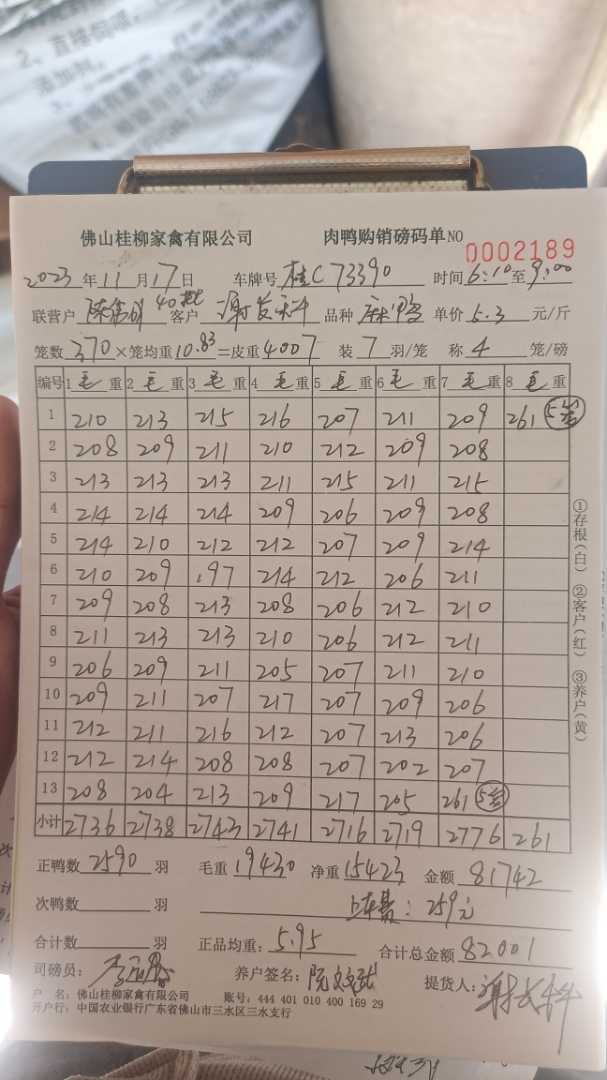 2、直接饲喂
添加剂。
佛山桂柳家禽有限公司 肉鸭购销磅码单 NO 0002189
2023年11月17日 车牌号 桂C73390 时间 6:10至9:00
联营户 40批 客户 谢发 品种 麻鸭 单价 5.3 元/斤
笼数 370 ×笼均重 10.83 =皮重 4007 装 7 羽/笼 称 4 笼/磅
编号 1 毛 重 2 毛 重 3 毛 重 4 毛 重 5 毛 重 6 毛 重 7 毛 重 8 毛 重
1 210 213 215 216 207 211 209 261 5笼
2 208 209 211 210 212 209 208
3 213 213 213 211 215 211 215
4 214 214 214 209 206 209 208
5 214 210 212 212 207 209 214
6 210 209 197 214 212 206 211
7 209 208 213 208 206 212 210
8 211 213 213 210 206 212 211
9 206 209 211 205 207 211 210
10 209 211 207 217 207 209 206
11 212 211 216 212 207 213 206
12 212 214 208 208 207 202 207
13 208 204 213 209 217 205 261 5笼
小计 2736 2738 2743 2741 2716 2719 2776 261
①存根(白) ②客户(红) ③养户(黄)
正鸭数 2590 羽 毛重 19430 净重 15423 金额 81742
次鸭数 羽 上车费：259元
合计数 羽 正品均重： 5.95 合计总金额 82001
司磅员： 养户签名： 提货人：
户 名：佛山桂柳家禽有限公司 账号：444 401 010 400 169 29
开户行：中国农业银行广东省佛山市三水区三水支行